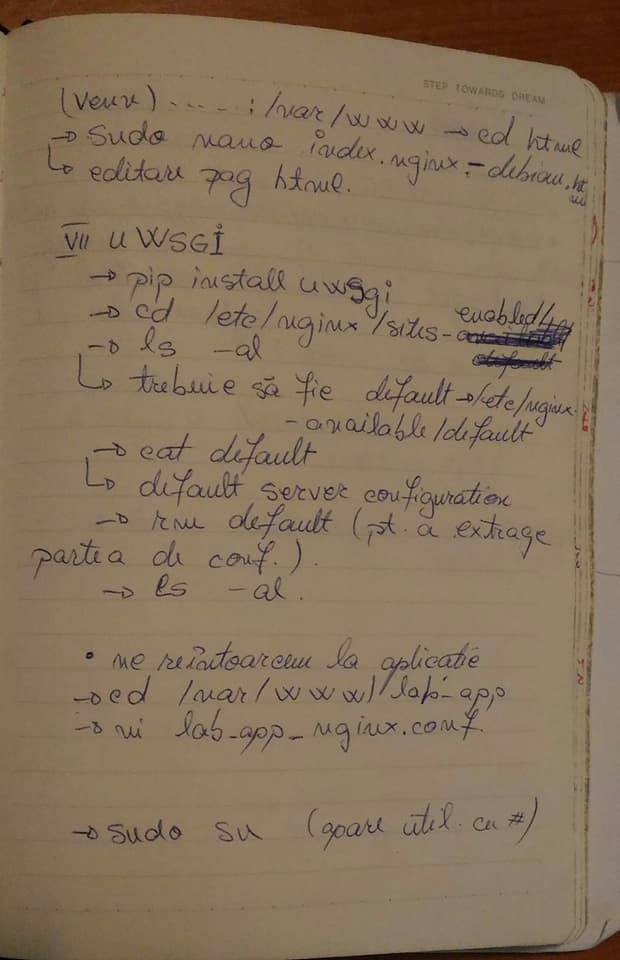 STEP TOWARDS DREAM
(venv) ..... : /var/www → cd html
→ sudo nano index.nginx-debian.html
↳ editare pag html.
VII uWSGI
→ pip install uwsgi
→ cd /etc/nginx/sites-enabled/
→ ls -al
↳ trebuie să fie default → /etc/nginx
-available/default
→ cat default
↳ default server configuration
→ rm default (pt. a extrage
partea de conf.).
→ ls -al.
• ne reîntoarcem la aplicatie
→ cd /var/www/lab-app
→ vi lab_app_nginx.conf.
→ sudo su (apare util. cu #)